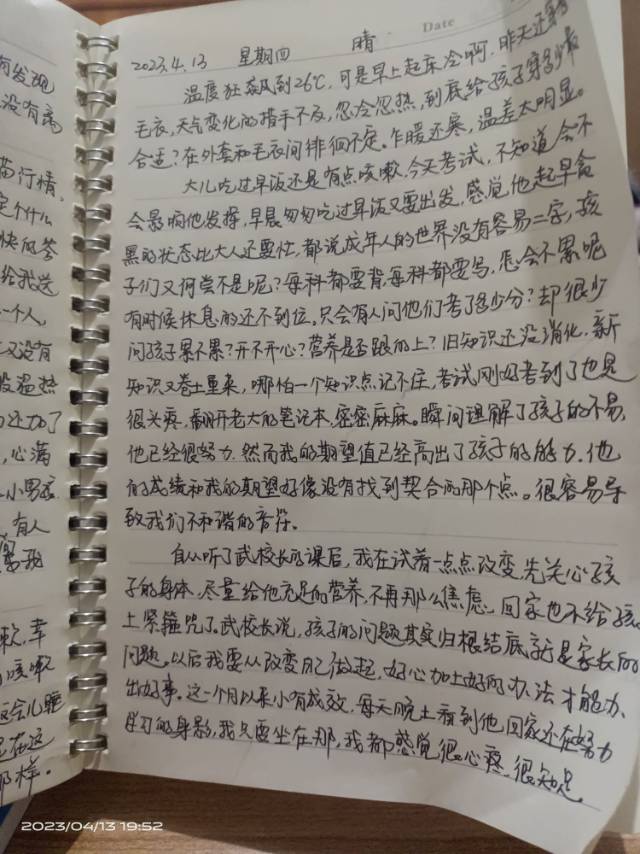 Date
2023.4.13 星期四 晴
温度狂飙到26℃,可是早上起床冷啊,昨天还穿
毛衣,天气变化的措手不及,忽冷忽热,到底给孩子穿多少最
合适?在外套和毛衣间徘徊不定。乍暖还寒,温差太明显。
大儿吃过早饭还是有点咳嗽,今天考试,不知道会不
会影响他发挥,早晨匆匆吃过早饭又要出发,感觉他起早贪
黑的状态比大人还要忙,都说成年人的世界没有容易二字,孩
子们又何尝不是呢?每科都要背,每科都要写,怎会不累呢
有时候休息的还不到位,只会有人问他们考了多少分?却很少
问孩子累不累?开不开心?营养是否跟的上?旧知识还没消化,新
知识又卷土重来,哪怕一个知识点记不住,考试刚好考到了也是
很头疼,翻开老大的笔记本,密密麻麻。瞬间理解了孩子的不易,
他已经很努力,然而我的期望值已经高出了孩子的能力,他
的成绩和我的期望好像没有找到契合的那个点。很容易导
致我们不和谐的音符。
自从听了武校长的课后,我在试着一点点改变,先关心孩
子的身体,尽量给他充足的营养,不再那么焦虑,回家也不给孩
上紧箍咒了,武校长说,孩子的问题其实归根结底就是家长的
问题。以后我要从改变自己做起,好心加上好的办法才能办
出好事。这一个月以来小有成效,每天晚上看到他回家还在努力
学习的身影,我只要坐在那,我都感觉很心疼,很知足。
有发现
没有离
行情,
给我送
一个人,
又没有
还加了
,心满
小男孩
,有人
咳嗽
会儿睡
在这
那样.
2023/04/13 19:52